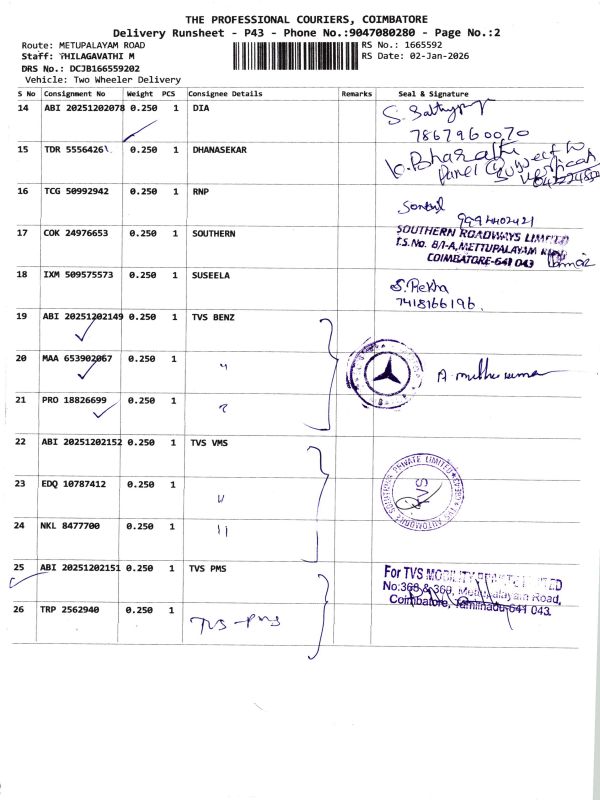 THE PROFESSIONAL COURIERS, COIMBATORE
Delivery Runsheet - P43 - Phone No.:9047080280 - Page No.:2
Route: METUPALAYAM ROAD RS No.: 1665592
Staff: THILAGAVATHI M RS Date: 02-Jan-2026
DRS No.: DCJB166559202
Vehicle: Two Wheeler Delivery
S No Consignment No Weight PCS Consignee Details Remarks Seal & Signature
14 ABI 20251202078 0.250 1 DIA
7867960070
15 TDR 5556426 0.250 1 DHANASEKAR K. Bharathi
Panel
16 TCG 50992942 0.250 1 RNP
9994402421
17 COK 24976653 0.250 1 SOUTHERN SOUTHERN ROADWAYS LIMITED
T.S.No. 8/1-A, METTUPALAYAM ROAD
COIMBATORE-641 043
18 IXM 509575573 0.250 1 SUSEELA S. Rekha
7418166196.
19 ABI 20251202149 0.250 1 TVS BENZ
20 MAA 653902067 0.250 1 "
21 PRO 18826699 0.250 1
22 ABI 20251202152 0.250 1 TVS VMS
23 EDQ 10787412 0.250 1 "
24 NKL 8477700 0.250 1 "
25 ABI 20251202151 0.250 1 TVS PMS For TVS MOBILITY PRIVATE LIMITED
No:368 & 369, Mettupalayam Road,
Coimbatore, Tamilnadu-641 043.
26 TRP 2562940 0.250 1 TVS-PMS